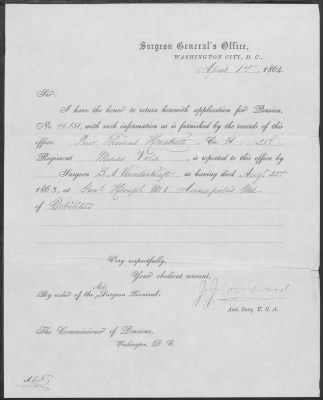 Surgeon General's Office,
WASHINGTON CITY, D. C.,
April 1st 1864.
Sir:
I have the honor to return herewith application for Pension,
No. 46151, with such information as is furnished by the records of this
office. Priv Thomas Co. H 28th
Regiment Mass Vols, is reported to this office by
Surgeon B. A. Vanderkieft as having died Augt 23rd
1863, at Genl Hospl No 1 Annapolis Md
of Debilitas
Very respectfully,
Your obedient servant,
By order of the Surgeon General:
Ast. Surg. U. S. A.
The Commissioner of Pensions,
Washington, D. C.